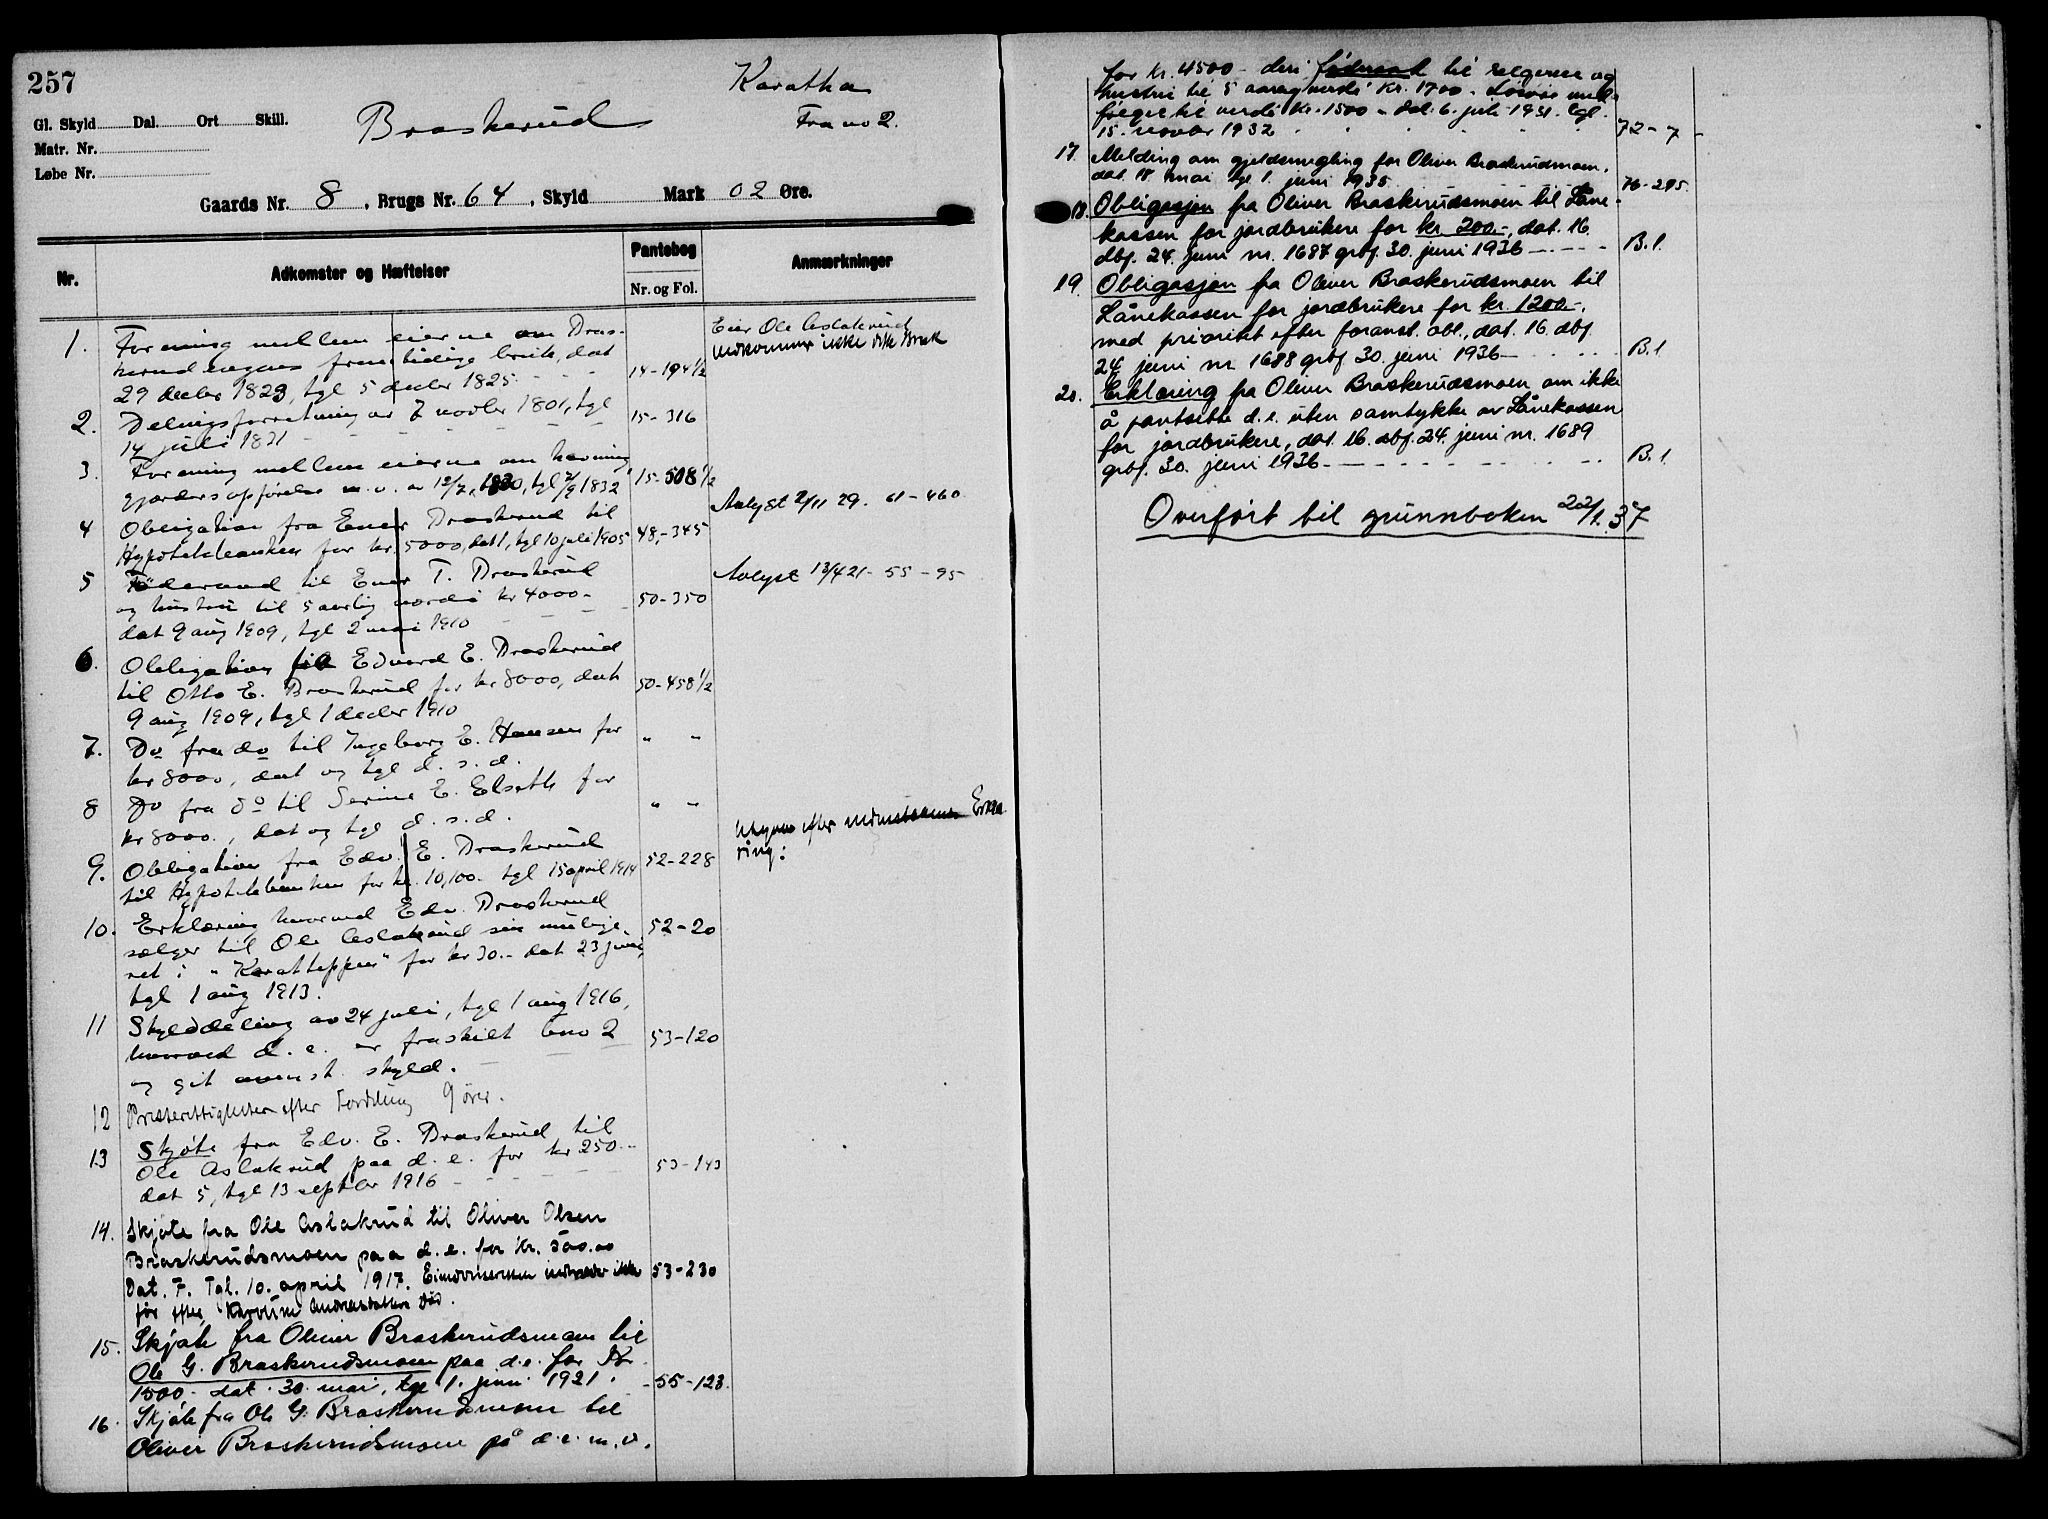 257
Karatha
Gl. Skyld Dal. Ort Skill.
Braskerud
Fra no 2.
Matr. Nr.
Løbe Nr.
Gaards Nr. 8, Brugs Nr. 64, Skyld Mark 02 Øre.
Nr.
Adkomster og Hæftelser
Pantebog
Nr. og Fol.
Anmærkninger
1. Forening mellem eierne om Bras-
kerudengens fremtidige bruk, dat
29 decbr 1823, tgl 5 decbr 1825. 14-194 1/2
Eier Ole Aslakrud
vedkommer ikke dette Bruk
2. Delingsforretning av 7 novbr 1801, tgl
14 juli 1821 15-316
3. Forening mellem eierne om havning
gjærdersopførelse m.v. av 12/7 1830, tgl 7/9 1832 15-508 1/2
4 Obligation fra Ener Braskerud til
Hypotekbanken for kr. 5000, dat 1, tgl 10 juli 1905 48-345
Avlyst 2/11 29. 61-460
5 Føderaad til Ener T. Braskerud
og hustru til 5 aarlig værdi kr 4000-
dat 9 aug 1909, tgl 2 mai 1910 50-350
Avlyst 13/4 21 - 55-95
6. Obligation fra Edvard E. Braskerud
til Otto E. Braskerud for kr 8000, dat
9 aug 1909, tgl 1 decbr 1910 50-458 1/2
7. Do fra do til Ingeborg E. Hansen for
kr 8000, dat og tgl d. s. d. " "
8 Do fra do til Serine E. Elseth for
kr 8000., dat og tgl d. s. d. " "
9. Obligation fra Edv. E. Braskerud
til Hypotekbanken for kr. 10,100.- tgl 15 april 1914 52-228
efter Erklæ
ring:
10. Erklæring hvorved Edv. Braskerud
sælger til Ole Aslakrud sin mulige
ret i "Karatteppen" for kr 30.- dat 23 juni,
tgl 1 aug 1913. 52-20
11 Skylddeling av 24 juli, tgl 1 aug 1916,
hvorved d. e. er fraskilt bno 2
og git avenst. skyld. 53-120
12 Præsterettigheter efter Fordeling 9 ører.
13 Skjøte fra Edv. E. Braskerud til
Ole Aslakrud paa d. e. for kr 250.-
dat 5, tgl 13 septbr 1916 53-143
14. Skjøte fra Ole Aslakrud til Oliver Olsen
Braskerudsmoen paa d. e. for Kr. 500.00
Dat. 7. Tgl. 10. april 1917. Eiendomsretten indtræder ikke
før efter Karoline Andreasdatters Død. 53-230
15. Skjøte fra Oliver Braskerudsmoen til
Ole G. Braskerudsmoen paa d.e. for Kr.
1500.- dat. 30. mai, tgl 1. juni 1921. 55-123.
16. Skjøte fra Ole G. Braskerudsmoen til
Oliver Braskerudsmoen på d. e. m. v.
for kr. 4500 - deri føderaad til selgeren og
hustru til 5 aarig verdi kr. 1700.- Løsøre med-
følger til verdi kr. 1500 - dat. 6. juli 1931. tgl.
15. novbr 1932 72-7
17. Melding om gjeldsmegling for Oliver Braskerudsmoen.
dat. 18 mai tgl 1. juni 1935 76-295.
18. Obligasjon fra Oliver Braskerudsmoen til Låne-
kassen for jordbrukere for kr. 200.-, dat. 16.
dbf. 24. juni nr. 1687 grbf. 30. juni 1936 B.1.
19. Obligasjon fra Oliver Braskerudsmoen til
Lånekassen for jordbrukere for kr. 1200.-,
med prioritet efter foranst. obl., dat. 16. dbf.
24 juni nr 1688 grbf 30. juni 1936 B.1
20. Erklæring fra Oliver Braskerudsmoen om ikke
å pantsette d. e. uten samtykke av Lånekassen
for jordbrukere, dat. 16. dbf. 24. juni nr. 1689
grbf. 30. juni 1936 B.1.
Overført til grunnboken 22/1. 37